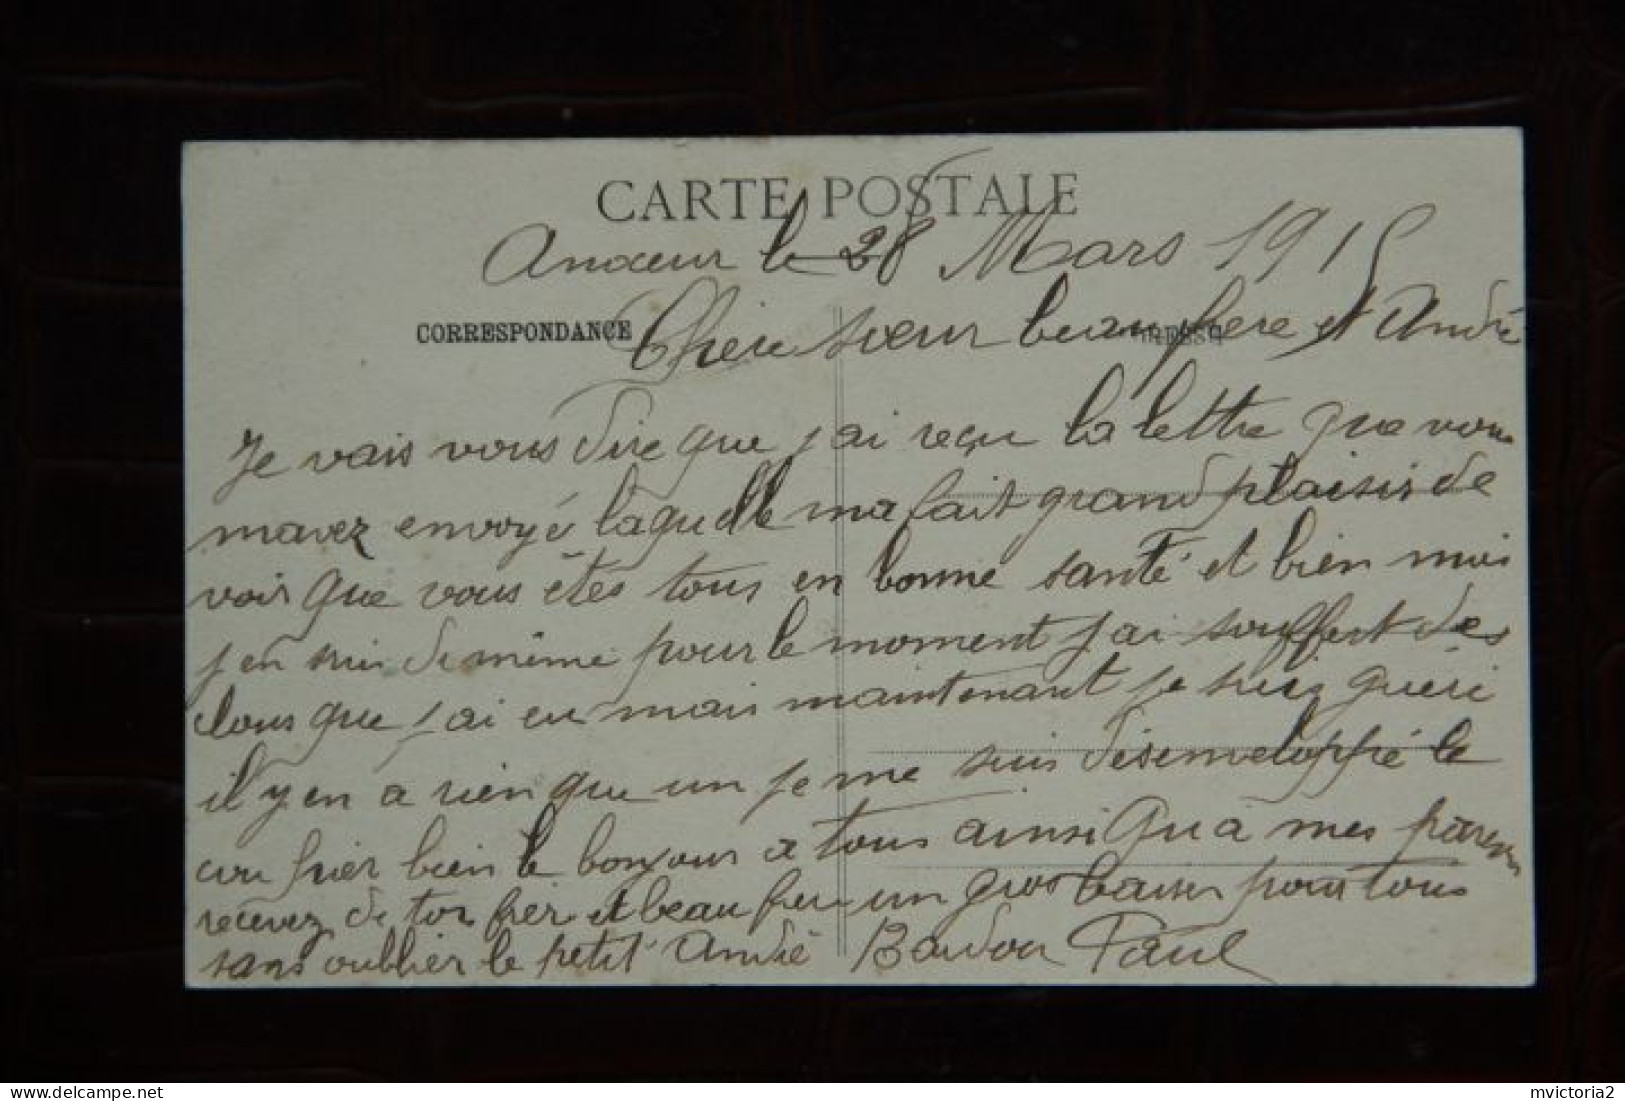 CARTE POSTALE
le 28 Mars 1915
CORRESPONDANCE
Chere soeur beau frere et André
Je vais vous dire que j ai reçu la lettre que vous
mavez envoyé laquelle ma fait grand plaisir de
voir que vous êtes tous en bonne santé et bien moi
j en suis de même pour le moment j ai souffert des
clous que j ai eu mais maintenant je suis guéri
il y en a rien que un je me suis désenveloppé le
cou hier bien le bonjour a tous ainsi qu a mes parents
recevez de ton frer et beau frere un gros baiser pour tous
sans oublier le petit André Paul
delcampe.net
mvictoria2